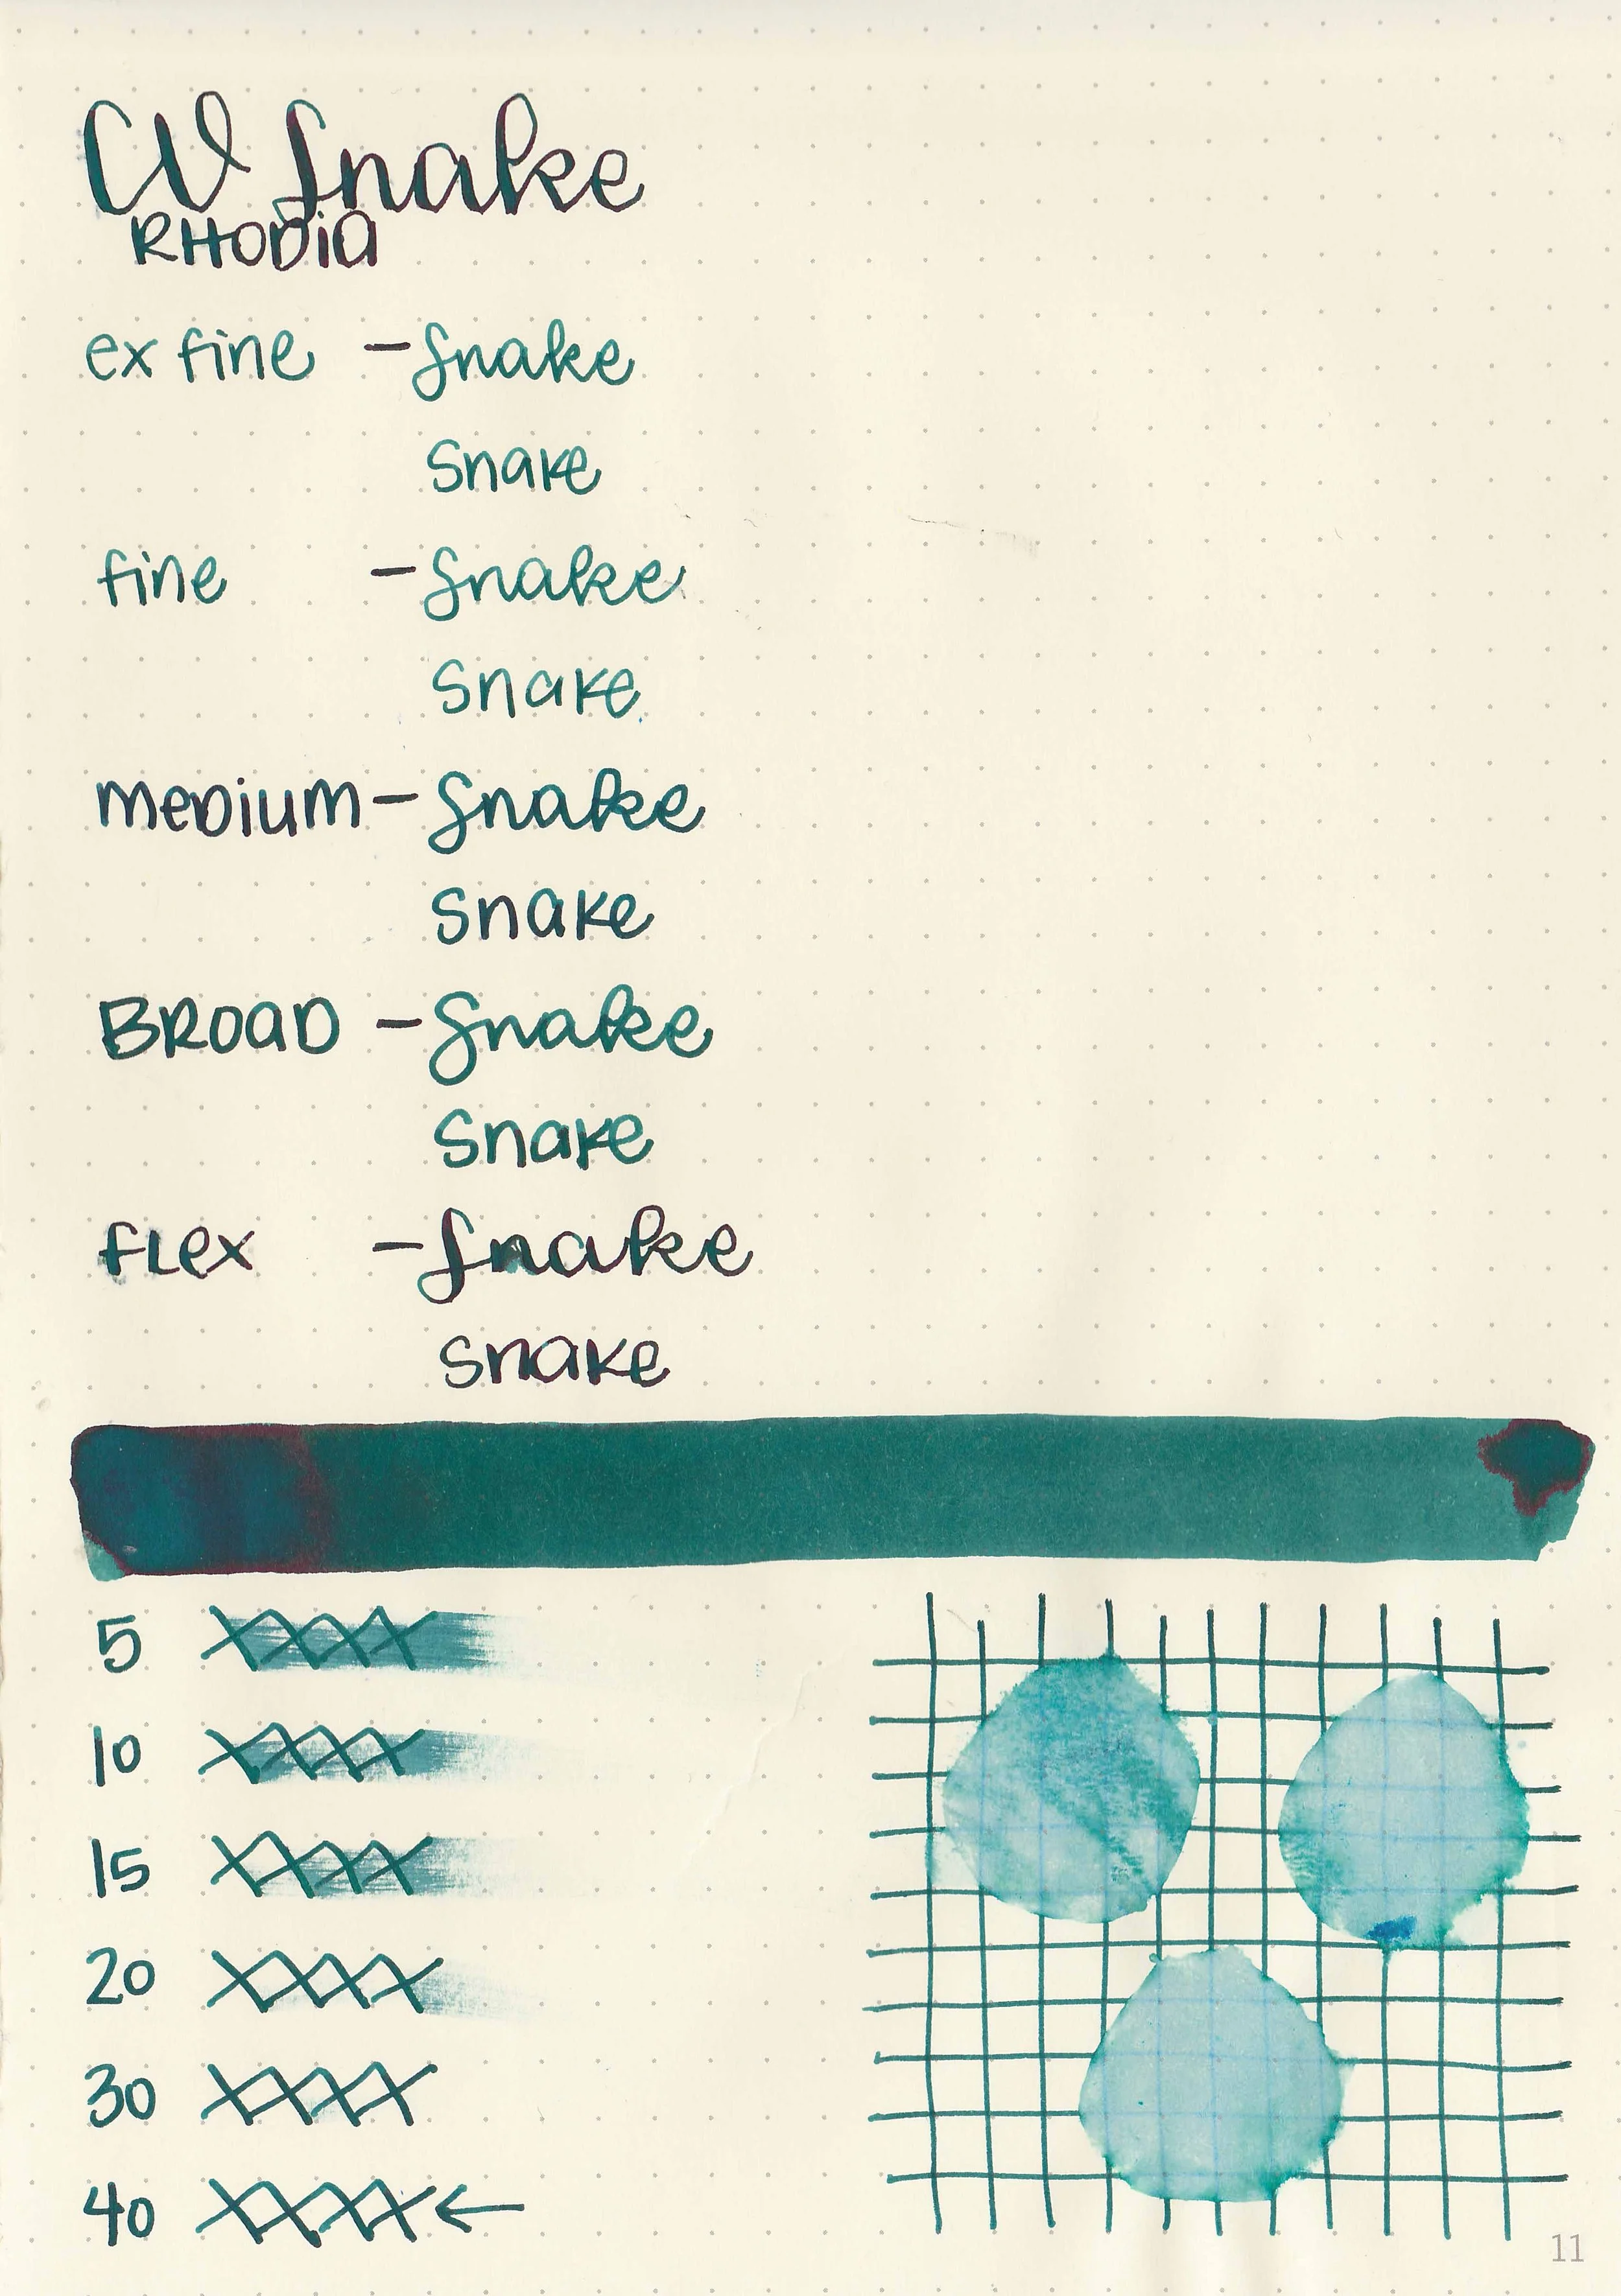 CV Snake
RHODIA
ex fine - Snake
Snake
fine - Snake
Snake
MEDIUM - Snake
Snake
BROAD - Snake
Snake
FLEX - Snake
Snake
5 XXXX
10 XXXX
15 XXXX
20 XXXX
30 XXXX
40 XXXX ←
11